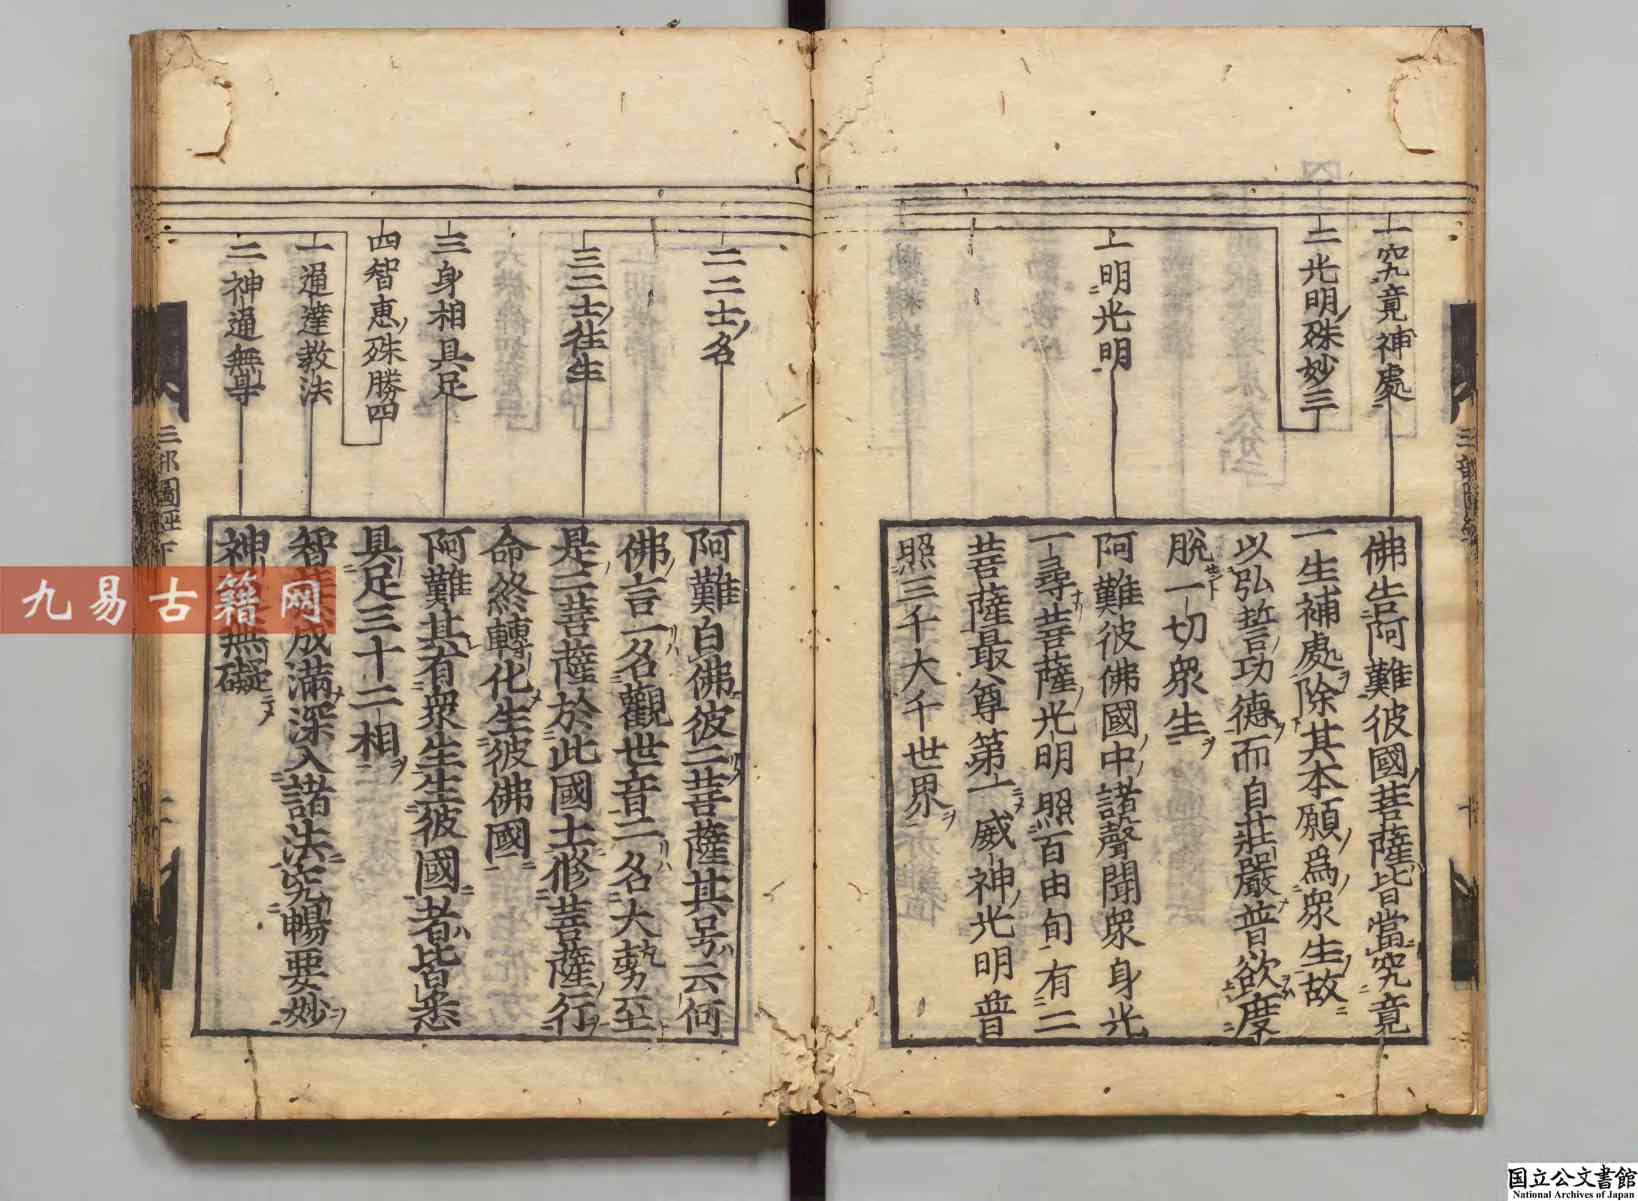 一究竟補處
二光明殊妙三
一明光明
佛告阿難彼國菩薩皆當究竟
一生補處除其本願爲衆生故
以弘誓功德而自莊嚴普欲度
脫一切衆生
阿難彼佛國中諸聲聞衆身光
一尋菩薩光明照百由旬有二
菩薩最尊第一威神光明普
照三千大千世界
二二士名
三二士往生
三身相具足
四智惠殊勝四
一通達教法
二神通無导
阿難白佛彼二菩薩其号云何
佛言一名觀世音二名大勢至
是二菩薩於此國土修菩薩行
命終轉化生彼佛國
阿難其有衆生生彼國者皆悉
具足三十二相
智成滿深入諸法究暢要妙
神無礙
三部圖經下
九易古籍网
国立公文書館
National Archives of Japan